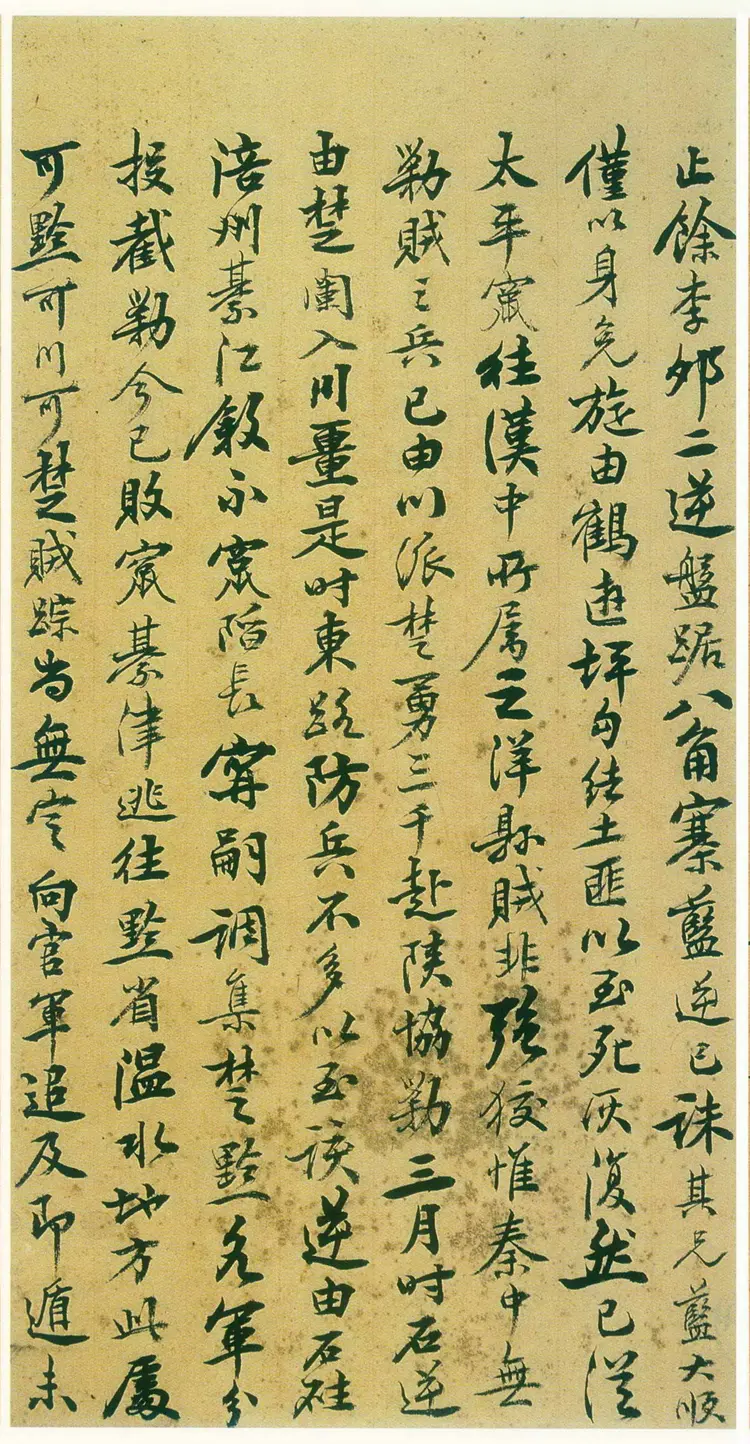 止餘李卯二逆盤踞八角寨藍逆已誅其兄藍大順
僅以身免旋由鶴遊坪勾结土匪以至死灰復然已從
太平竄往漢中所属之洋縣賊非強狡惟秦中無
勦賊之兵已由川派楚勇三千赴陕協勦三月时石逆
由楚闌入川畺是时東路防兵不多以至該逆由石砫
涪州綦江敘永竄陷長寧嗣調集楚黔各軍分
投截勦今已敗竄綦津逃往黔省温水地方此處
可黔可川可楚賊踪尚無定向官軍追及即遁未